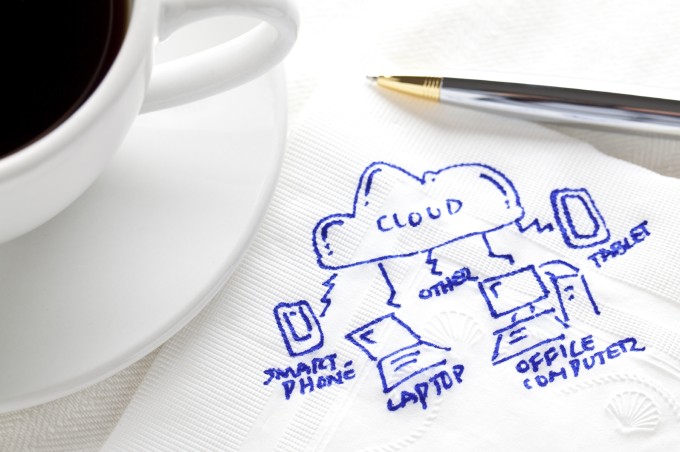 CLOUD
TABLET
OTHER
SMART
PHONE
LAPTOP
OFFICE
COMPUTER